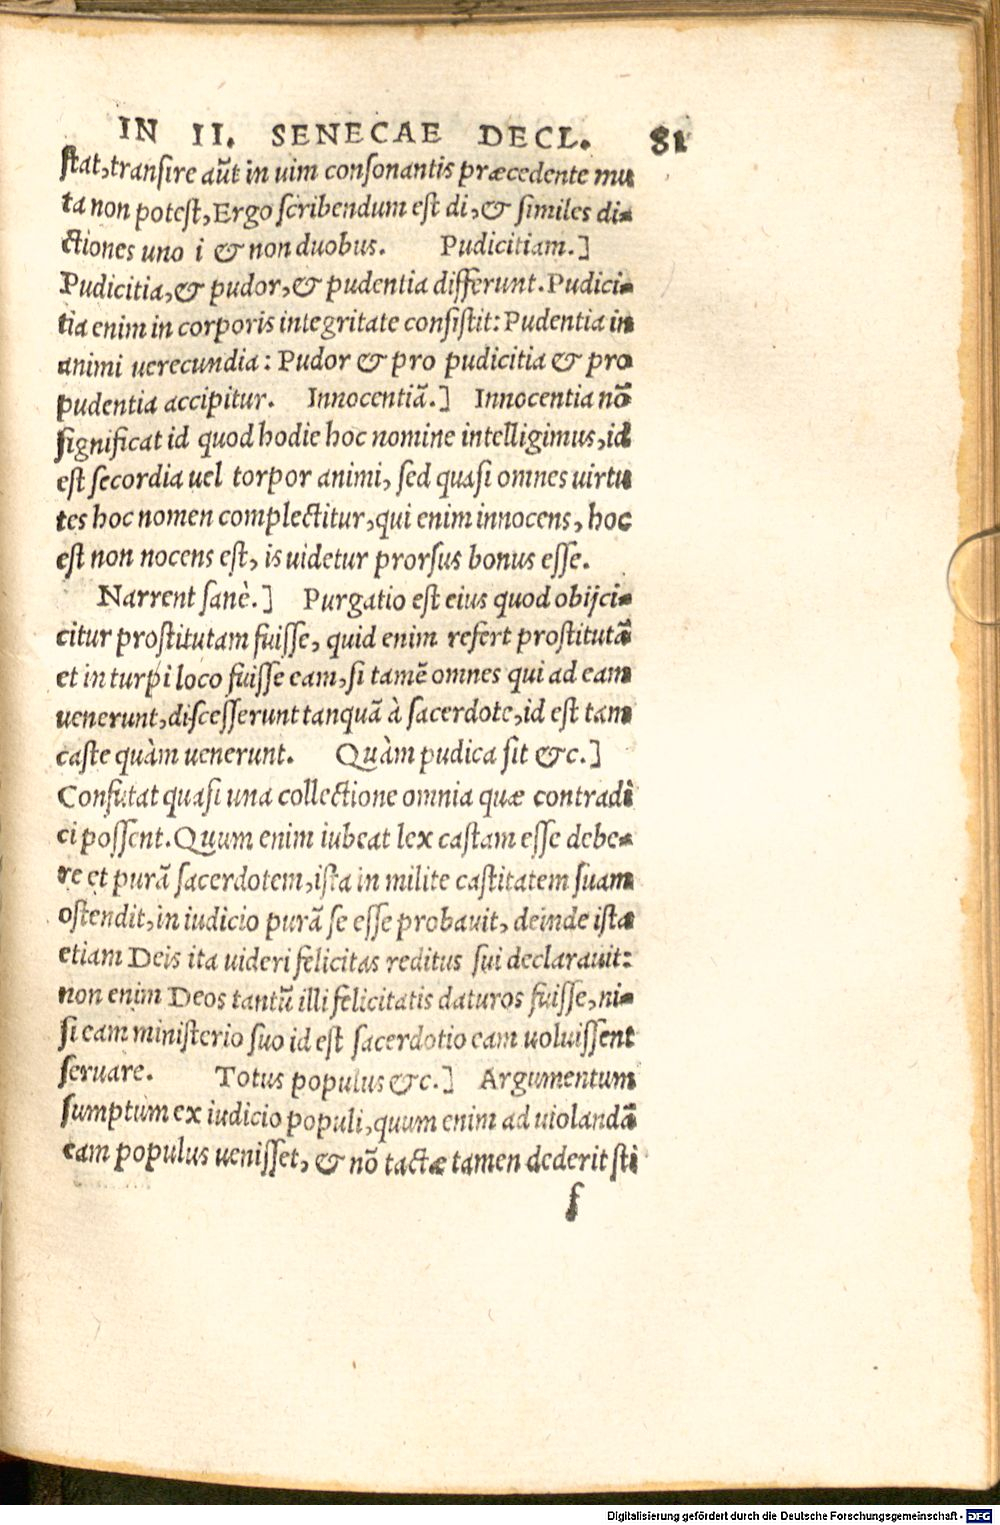 IN II. SENECAE DECL. 81
stat, transire aũt in uim consonantis præcedente mu
ta non potest, Ergo scribendum est di, & similes di=
ctiones uno i & non duobus. Pudicitiam.]
Pudicitia, & pudor, & pudentia differunt. Pudici=
tia enim in corporis integritate consistit: Pudentia in
animi uerecundia: Pudor & pro pudicitia & pro
pudentia accipitur. Innocentiã.] Innocentia nõ
significat id quod hodie hoc nomine intelligimus, id
est secordia uel torpor animi, sed quasi omnes uirtu
tes hoc nomen complectitur, qui enim innocens, hoc
est non nocens est, is uidetur prorsus bonus esse.
Narrent sanè.] Purgatio est eius quod obijci=
citur prostitutam fuisse, quid enim refert prostitutã
et in turpi loco fuisse eam, si tamẽ omnes qui ad eam
uenerunt, discesserunt tanquã à sacerdote, id est tam
caste quàm uenerunt. Quàm pudica sit &c.]
Confutat quasi una collectione omnia quæ contradi
ci possent. Quum enim iubeat lex castam esse debe=
re et purã sacerdotem, ista in milite castitatem suam
ostendit, in iudicio purã se esse probauit, deinde ista
etiam Deis ita uideri felicitas reditus sui declarauit:
non enim Deos tantũ illi felicitatis daturos fuisse, ni=
si eam ministerio suo id est sacerdotio eam uoluissent
seruare. Totus populus &c.] Argumentum
sumptum ex iudicio populi, quum enim ad uiolandã
eam populus uenisset, & nõ tactæ tamen dederit sti
f
Digitalisierung gefördert durch die Deutsche Forschungsgemeinschaft - DFG